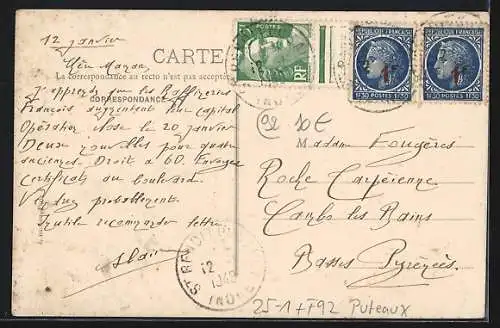 12 janvier
CARTE
Chère Maman,
La correspondance au recto n'est pas acceptée
J'apprends que les Raffineries
CORRESPONDANCE
Français augmentent leur capital
Opération close le 20 janvier
Deux nouvelles pour quatre
anciennes. Droit à 60. Envoyez
certificats au boulevard.
Vendrez probablement.
Inutile recommander lettre.
Alain
RF
1F50 POSTES 1F50
1F50 POSTES 1F50
02
10€
Madame Fougères
Roche
Cambo les Bains
Basses Pyrénées
12
INDRE
25-1 + F92 Puteaux